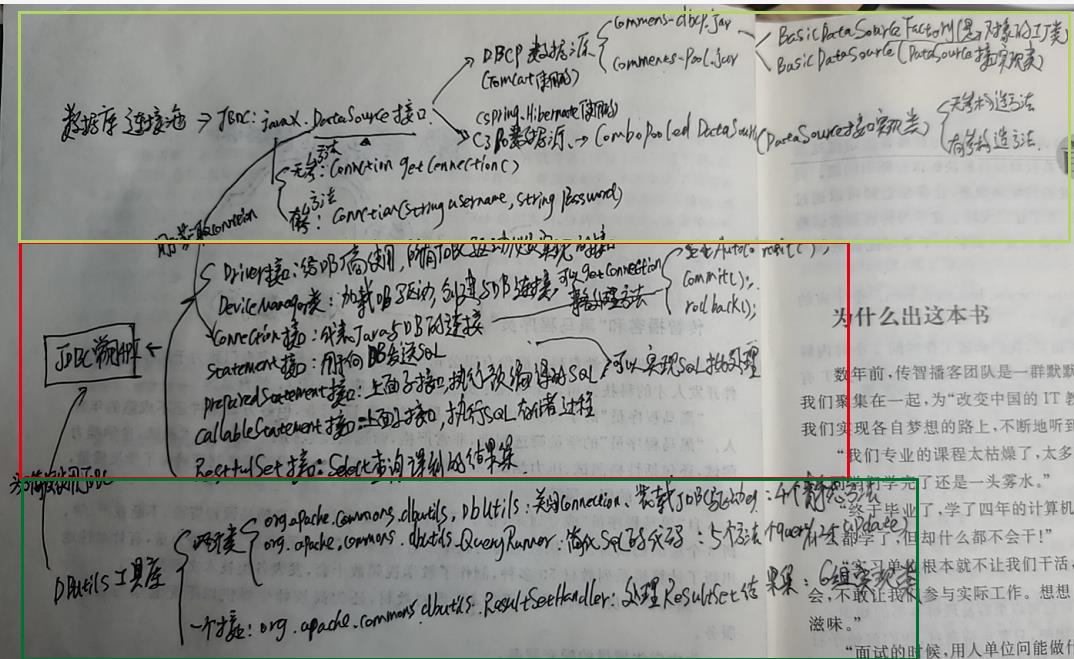 commens-dbcp.jar
BasicDataSourceFactory(
对象的工厂类
DBCP数据源
comments-Pool.jar
BasicDataSource(DataSource接口实现类)
(Tomcat使用的)
数据库连接池→JBDC:javax.DataSource接口
(Spring.Hibernate使用的)
无参构造方法
C3P0数据源→ComboPooledDataSource(DataSource接口实现类)
有参构造方法
无参方法:Connection getConnection()
有参方法:Connetion(string username,string Password)
Driver接口:给
商使用,所有JDBC驱动必须实现的接口
DeviceManager类:加载DB驱动,创建与DB连接,可以getConnection
commit();
Connection接口:代表Java与DB的连接
事务处理方法
rollback();
JDBC常用
Statement接口:用于向DB发送SQL
可以实现SQL批处理
preparedStatement接口:上面子接口,执行预编译的SQL
callableStatement接口:上面子接口,执行SQL存储过程
ResultSet接口:Select查询
的结果集
为什么出这本书
数年前,传智播客团队是一群默默
我们聚集在一起,为“改变中国的IT教
我们实现各自梦想的路上,不断地听到
“我们专业的课程太枯燥了,太多
学完了还是一头雾水。”
“终于毕业了,学了四年的计算机
都学了,但却什么都不会干!”
“实习单位根本就不让我们干活,
会,不敢让我们参与实际工作。想想
滋味。”
“面试的时候,用人单位问能做什
DButils工具库
两个类
org.apache.commons.dbutils.DbUtils:关闭Connection、装载JDBC驱动
:4个静态方法
org.apache.commons.dbutils.QueryRunner:简化SQL的代码:5个方法
query
update)
一个接口:org.apache.commons.dbutils.ResultSetHandler:处理ResultSet结果集:6组实现类